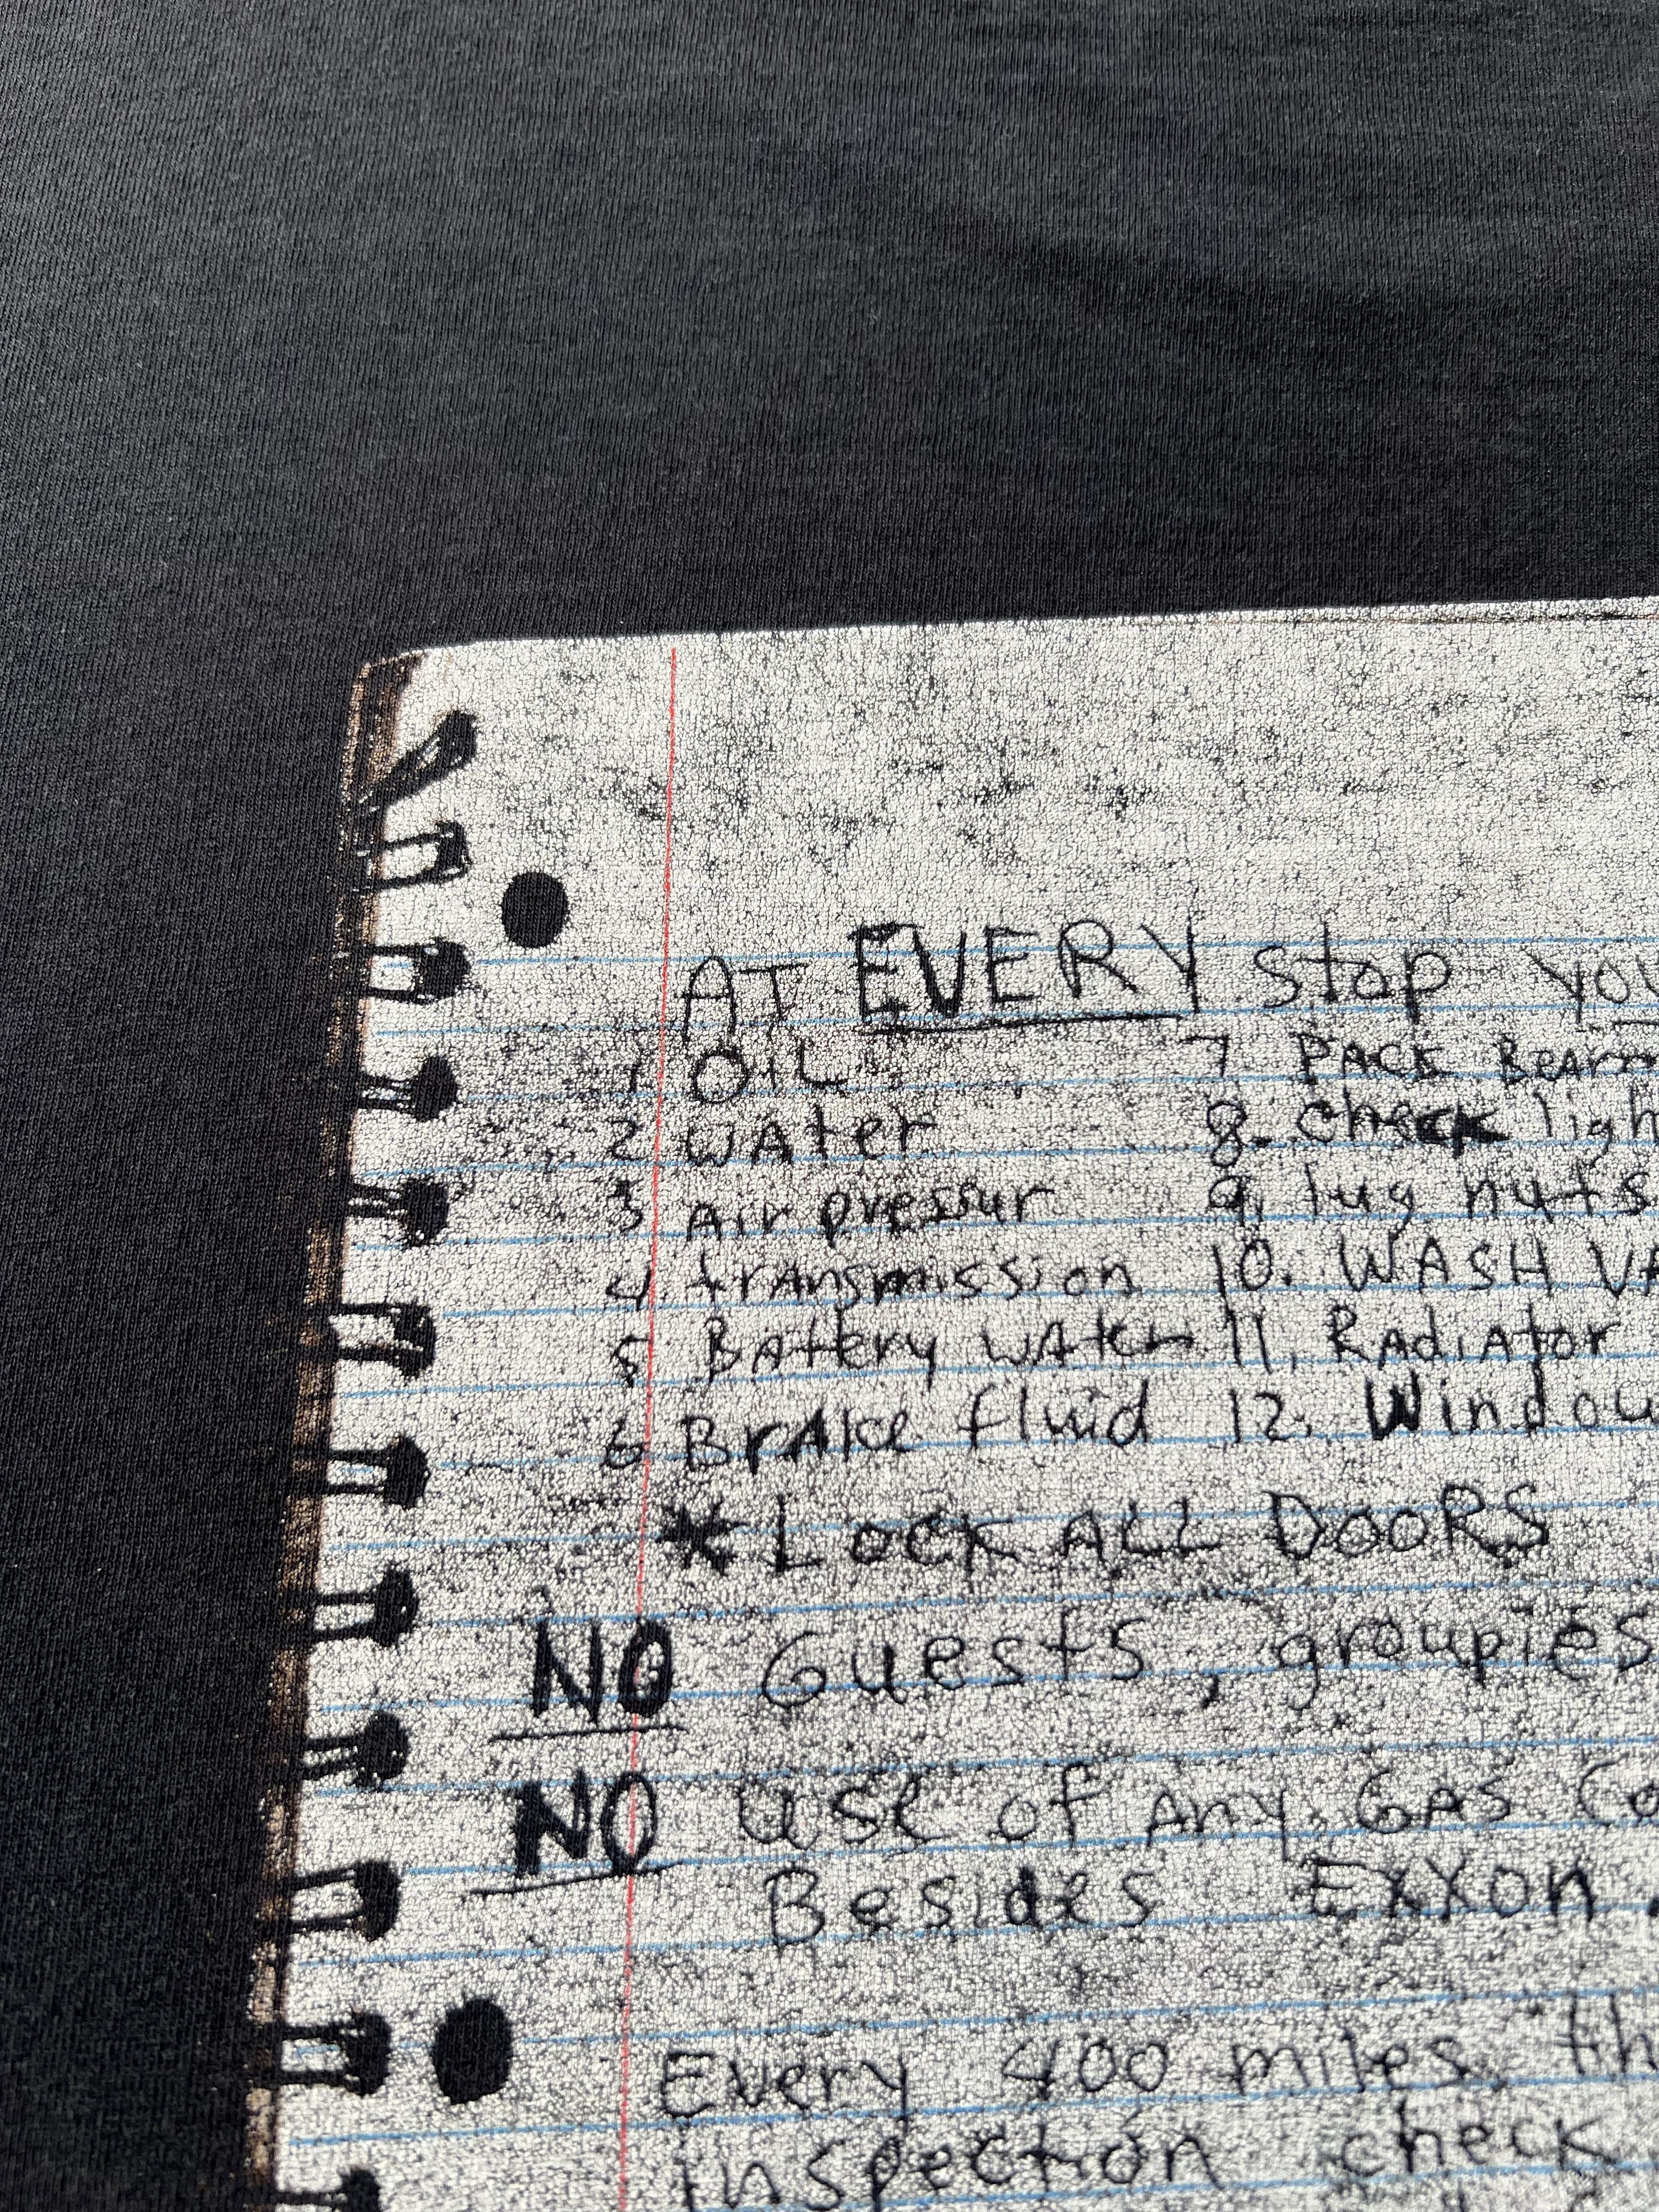 AT EVERY stop you
1 OiL 7. PACK Bear
2 WAter 8. check ligh
3 Air pressur 9. lug nuts
4. trAnsmission 10. WASH VA
5. BAttery wAter 11. RAdiAtor
6 BrAke fluid 12. Window
* LOCK ALL DOORS
NO Guests, groupies
NO use of Any GAS Co
Besides Exxon
Every 400 miles. th
inspection check